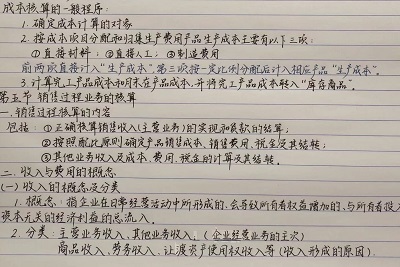 成本核算的一般程序:
1. 确定成本计算的对象
2. 按成本项目分配和归集生产费用产品生产成本主要有以下三项:
①直接材料; ②直接人工; ③制造费用
前两项直接计入“生产成本”,第三项按一定比例分配后计入相应产品“生产成本”.
3. 计算完工产品成本和月末在产品成本,并将完工产品成本转入“库存商品”.
第五节 销售过程业务的核算
一. 销售过程核算的内容
包括: ①正确核算销售收入(主营业务)的实现和货款的结算;
②按照配比原则确定产品销售成本、销售费用、税金及其结转;
③其他业务收入及成本、费用、税金的计算及其结转.
二. 收入与费用的概念
(一) 收入的概念及分类
1. 概念: 指企业在日常经营活动中所形成的、会导致所有者权益增加的、与所有者投入
资本无关的经济利益的总流入.
2. 分类: 主营业务收入、其他业务收入; (企业经营业务的主次)
商品收入、劳务收入、让渡资产使用权收入等(收入形成的原因).